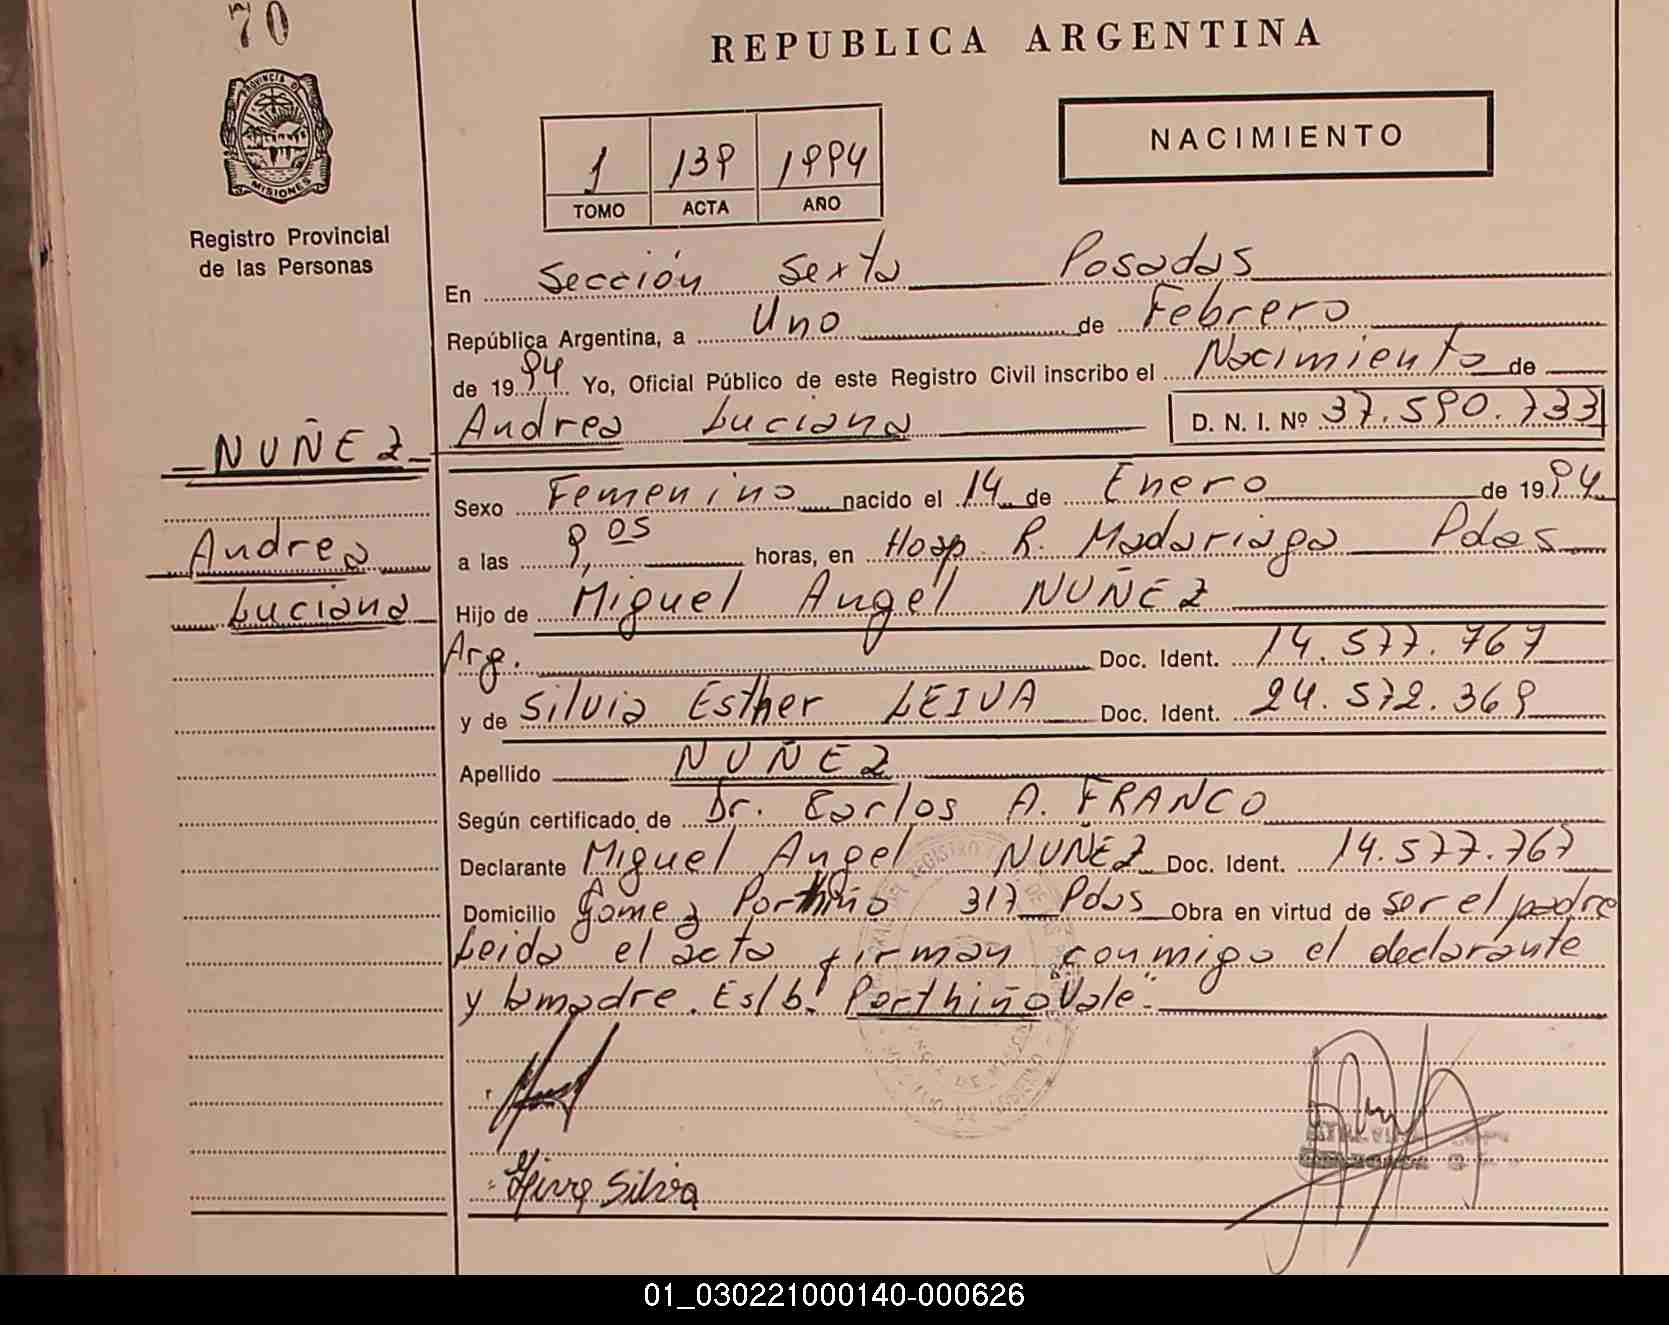 70
REPUBLICA ARGENTINA
PROVINCIA D
MISIONES
Registro Provincial
de las Personas
1 139 1994
TOMO ACTA AÑO
NACIMIENTO
En Sección Sexta Posadas
República Argentina, a Uno de Febrero
de 1994 Yo, Oficial Público de este Registro Civil inscribo el Nacimiento de
NUÑEZ Andrea Luciana D. N. I. Nº 37.590.733
Sexo Femenino nacido el 14 de Enero de 1994
Andrea
a las 9,05 horas, en Hosp. R. Madariaga Pdas
Luciana
Hijo de Miguel Angel NUÑEZ
Arg. Doc. Ident. 14.577.767
y de Silvia Esther LEIVA Doc. Ident. 24.572.369
Apellido NUÑEZ
Según certificado de Dr. Carlos A. FRANCO
Declarante Miguel Angel NUÑEZ Doc. Ident. 14.577.767
Domicilio Gomez Porthiño 317 Pdas Obra en virtud de ser el padre
Leida el acta firman conmigo el declarante
y la madre. Es/b. "Porthiño Vale".
Silvia
01_030221000140-000626